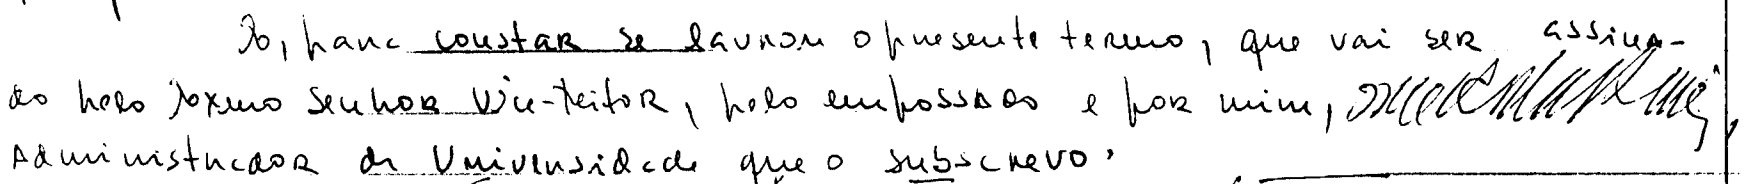 E, para constar se lavrou o presente termo, que vai ser assina-
do pelo Exmo Senhor Vice-Reitor, pelo empossado e por mim,
Administrador da Universidade que o subscrevo.